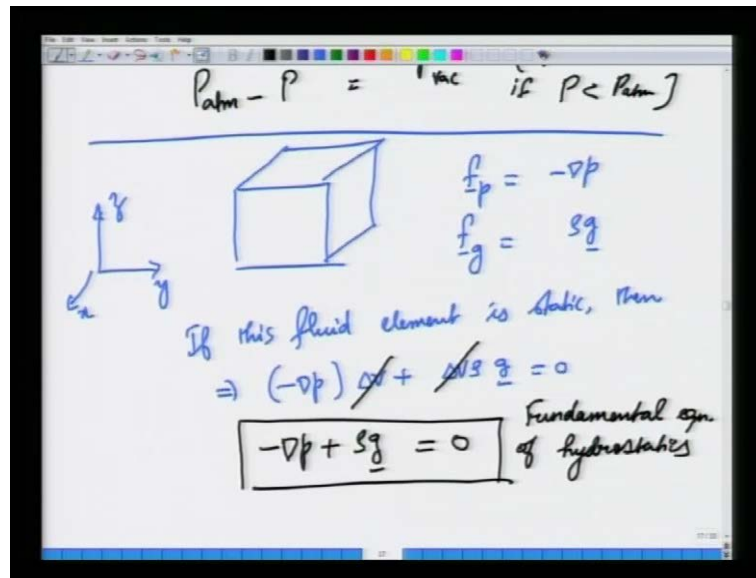 File Edit View Insert Actions Tools Help
P_atm - P = P_vac if P < P_atm ]
f_p = -∇p
z
f_g = ρg
y
x
If this fluid element is static, then
⇒ (-∇p) ΔV + ΔVρ g = 0
Fundamental eqn.
-∇p + ρg = 0 of hydrostatics
17